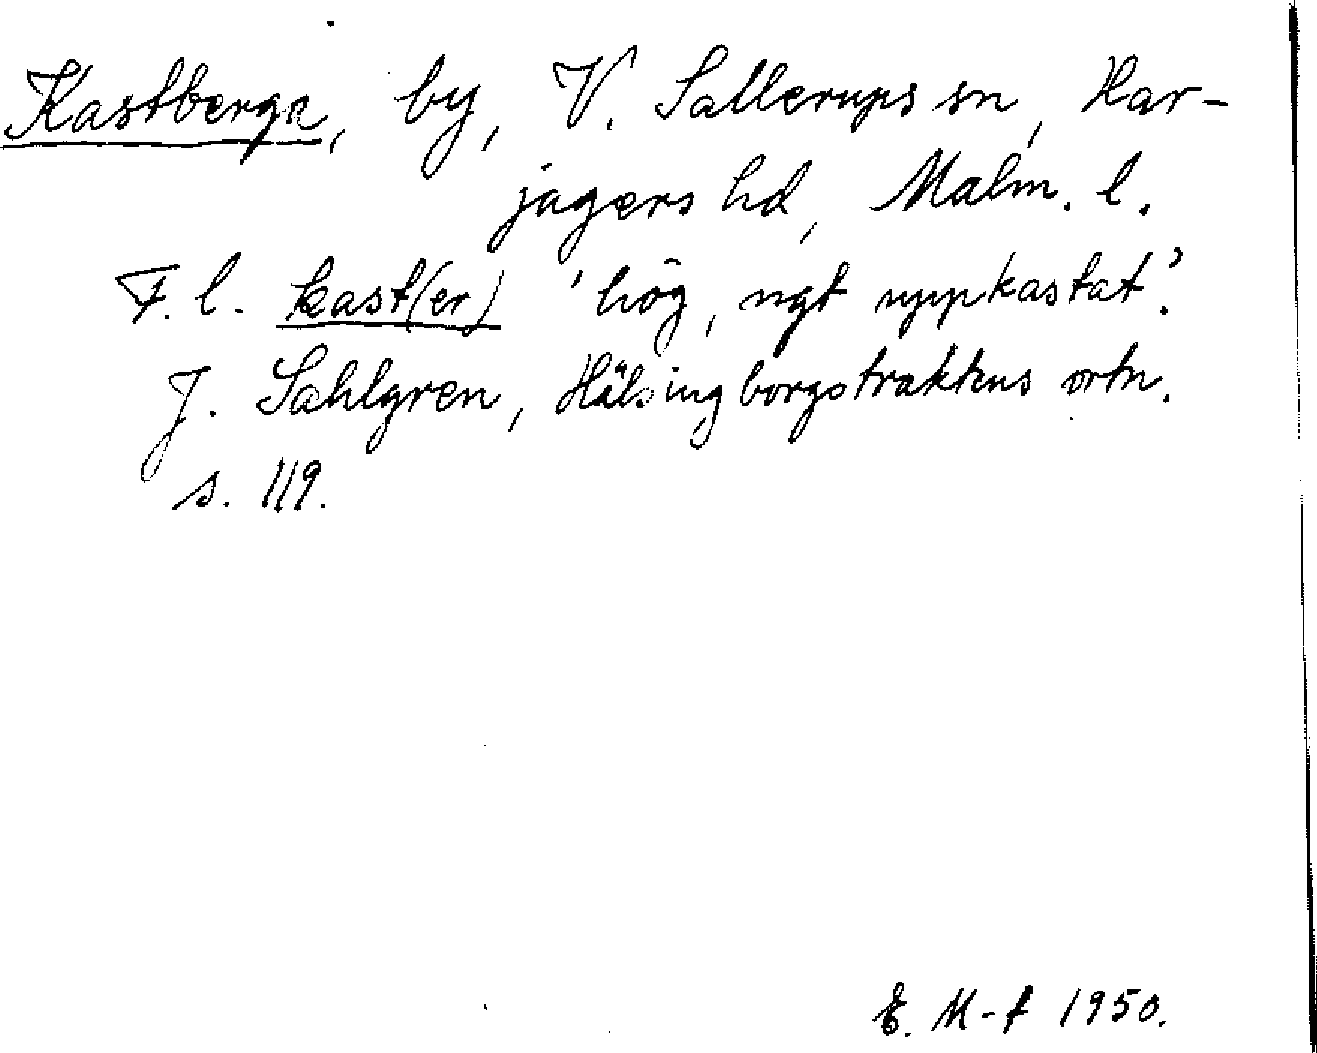 Kastberga, by, V. Sallerups sn, Har-
jagers hd, Malm. l.
F. l. kast(er) 'hög, ngt uppkastat'.
J. Sahlgren, Hälsingborgstraktens ortn.
s. 119.
E. M-f 1950.